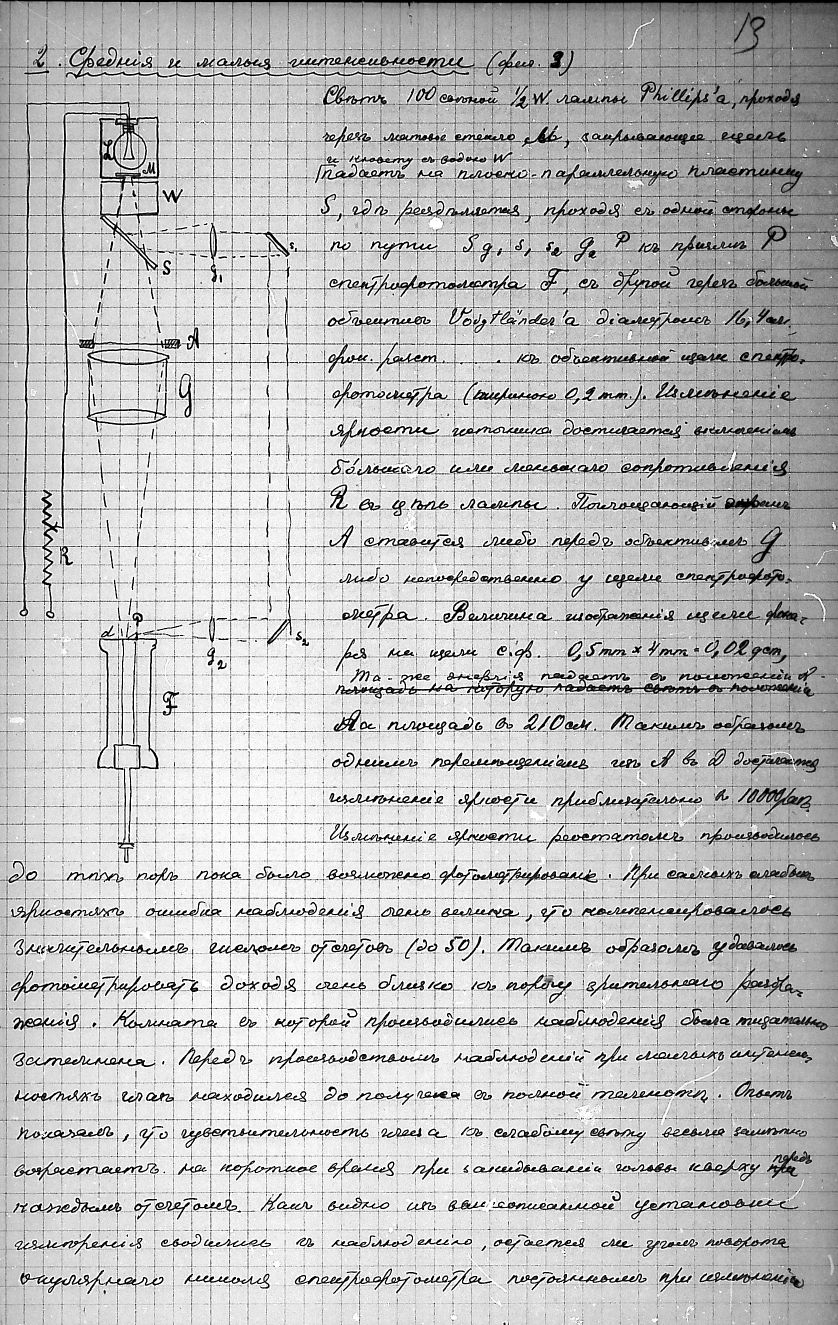 13
2. Среднія и малыя интенсивности (фиг. 3)
Свѣтъ 100 свѣчной 1/2 W лампы Phillips'а, проходя
черезъ матовое стекло M, закрывающее щель
и кювету съ водою W
падаетъ на плоско-параллельную пластинку
S, гдѣ раздѣляется, проходя съ одной стороны
по пути S g₁ s₁ s₂ g₂ P къ призмѣ P
спектрофотометра F, съ другой черезъ большой
объективъ Voigtländer'а діаметромъ 16,4 см,
фок. разст. . . . къ объективной щели спектро-
фотометра (шириною 0,2 mm.). Измѣненіе
яркости источника достигается включеніемъ
бо́льшаго или меньшаго сопротивленія
R въ цѣпь лампы. Поглощающій экранъ
A ставится либо передъ объективомъ G
либо непосредственно у щели спектрофото-
метра. Величина изображенія щели фона-
ря на щели с.ф. 0,5 mm × 4 mm = 0,02
Та-же энергія падаетъ въ положеніи
площадь на которую падаетъ свѣтъ въ положеніи
A на площадь въ 210 см. Такимъ образомъ
однимъ перемѣщеніемъ изъ A въ D достигается
измѣненіе яркости приблизительно въ 10000 разъ.
Измѣненіе яркости реостатомъ производилось
до тѣхъ поръ пока было возможно фотометрированіе. При самыхъ слабыхъ
яркостяхъ ошибка наблюденія очень велика, что компенсировалось
значительнымъ числомъ отсчетовъ (до 50). Такимъ образомъ удавалось
фотометрировать доходя очень близко къ порогу зрительнаго раздра-
женія. Комната въ которой производились наблюденія была тщательно
затемнена. Передъ производствомъ наблюденій при малыхъ интенсив-
ностяхъ глазъ находился до получаса въ полной темнотѣ. Опытъ
показалъ, что чувствительность глаза къ слабому свѣту весьма замѣтно
возрастаетъ на короткое время при закидываніи головы кверху передъ
каждымъ отсчетомъ. Какъ видно изъ вышеописанной установки
измѣренія сводились къ наблюденію, остается ли уголъ поворота
окулярнаго николя спектрофотометра постояннымъ при измѣненіи
L
M
W
S
g₁
s₁
A
G
R
d
P
g₂
s₂
F